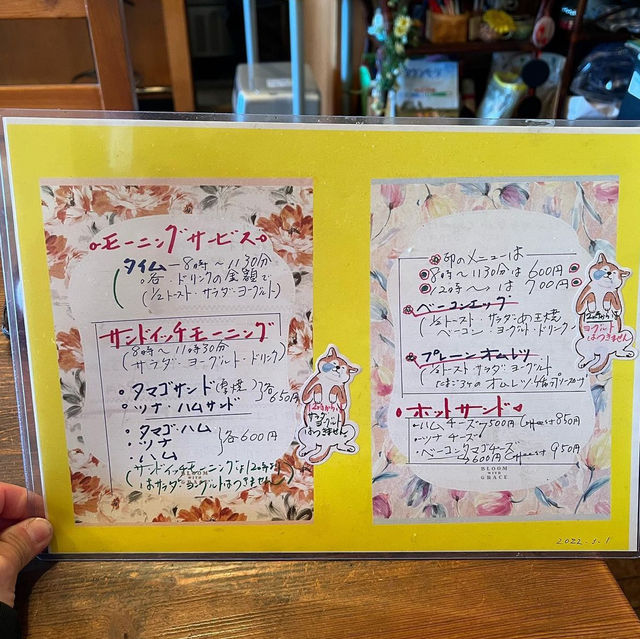 モーニングサービス
タイム 8時〜11時30分
各・ドリンクの金額で
(1/2トースト・サラダ・ヨーグルト)
サンドイッチモーニング
(8時〜11時30分)
(サラダ・ヨーグルト・ドリンク)
タマゴサンド(卵焼) 各650円
ツナ・ハムサンド
・タマゴ・ハム
・ツナ 各600円
・ハム
(サンドイッチモーニングは12時以
はサラダ・ヨーグルトはつきません)
BLOOM
WITH
GRACE
12時から
サラダ
ヨーグルト
はつきません
卵のメニューは
8時〜11時30分は 600円
12時〜 は 700円
ベーコンエッグ
1/2トースト・サラダ・
ベーコン・ヨーグルト・ドリンク
プレーンオムレツ
1/2トースト サラダ ヨーグルト
ヨーグルト
はつきません
ホットサンド
・ハムチーズ 500円 Coffeeset 850円
・ツナチーズ
・ベーコンタマゴチーズ
600円 Coffeeset 950円
BLOOM
WITH
GRACE
2022.5.1